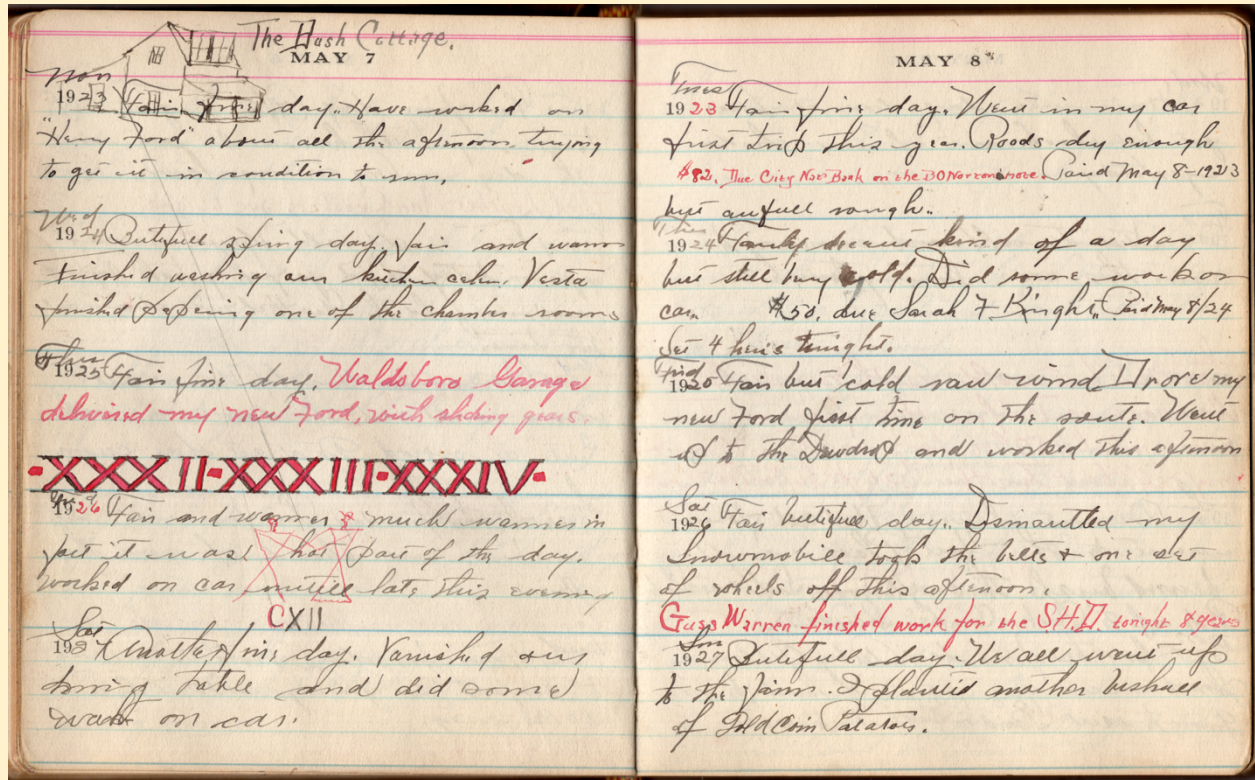 The Bush Cottage.
MAY 7
Mon
1923 Fair fine day. Have worked on
"Henry Ford" about all the afternoon trying
to get it in condition to run.
Wed
1924 Butifull spring day, fair and warm
Finished washing our kitchen Vesta
finished papering one of the chamber rooms
Thu
1925 Fair fine day. Waldoboro Garage
delivired my new Ford, with sliding gears.
XXXII-XXXIII-XXXIV
1926 Fair and warmer much warmer in
fact it was hot part of the day.
worked on car untill late this evening
CXII
Sat
192 Another fine day. Varnished our
table and did some
work on car.
MAY 8
Tues
1923 Fair fine day. Went in my car
first trip this year. Roads dry enough
$82. Due City Nat Bank on the note. Paid May 8-1923
but aufull rough.
Thu
1924 Family kind of a day
but still cold. Did some work on
car. $50. due Sarah F Knight. Paid May 8/24
Set 4 hens tonight.
Frid
1925 Fair but cold raw wind Drove my
new Ford first time on the route. Went
up to the and worked this afternoon
Sat
1926 Fair butifull day. Dismantled my
Snowmobile took the belts + one set
of wheels off this afternoon.
Guss Warren finished work for the S.H.D. tonight 8 years
Sun
1927 Butifull day. We all went up
to the farm. I planted another bushell
of Gold Coin Potatoes.